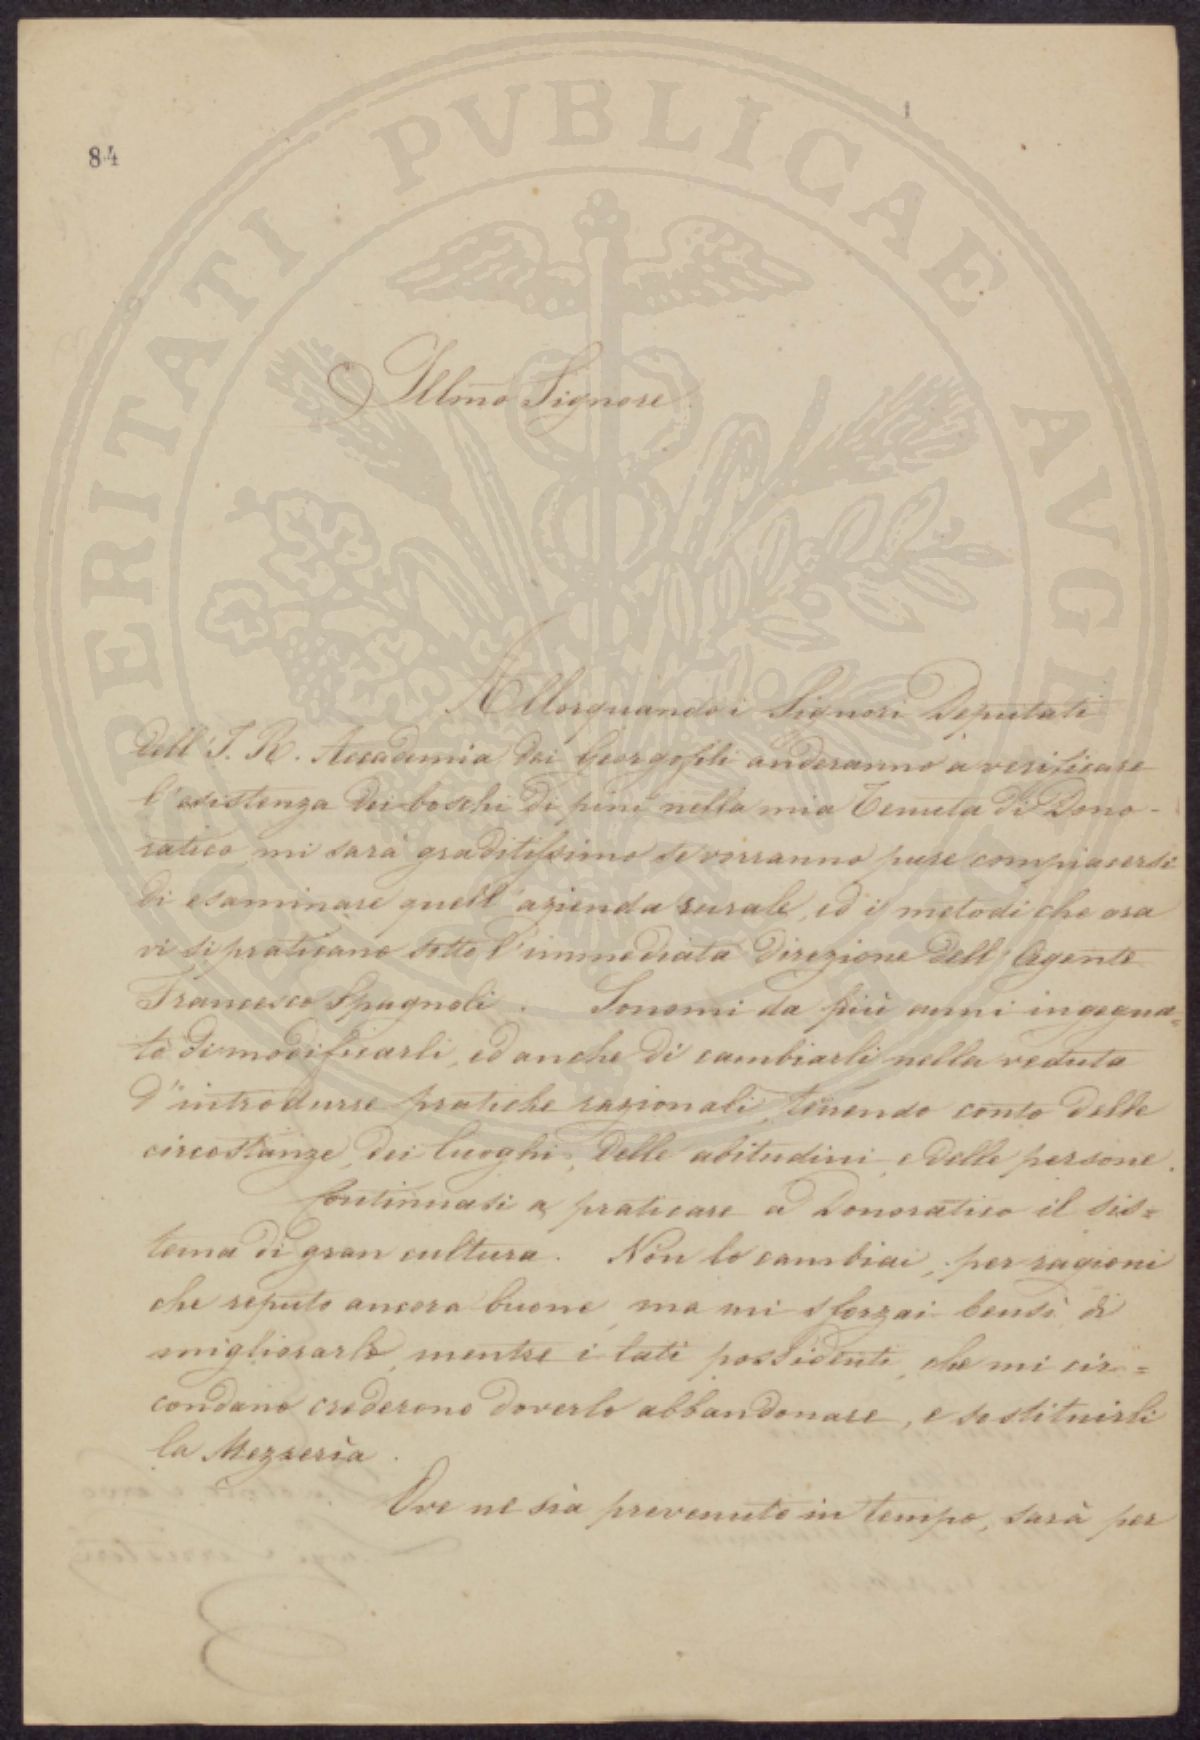 84
Illmo Signore
Allorquando i Signori Deputati
dell'I. R. Accademia dei Georgofili anderanno a verificare
l'esistenza dei boschi di pini nella mia Tenuta di Dono-
ratico mi sarà graditissimo se vorranno pure compiacersi
di esaminare quell'azienda rurale, ed i metodi che ora
vi si praticano sotto l'immediata direzione dell'Agente
Francesco Spagnoli. Sonomi da più anni ingegna=
to di modificarli, ed anche di cambiarli nella veduta
d'introdurre pratiche razionali, tenendo conto delle
circostanze, dei luoghi, delle abitudini, e delle persone.
Continuasi a praticare a Donoratico il sis=
tema di gran cultura. Non lo cambiai, per ragioni
che reputo ancora buone, ma mi sforzai bensì di
migliorarlo, mentre i lati possidenti, che mi cir=
condano crederono doverlo abbandonare, e sostituirli
la Mezzerìa.
Ove ne sia prevenuto in tempo, sarà per
PROSPERITATI PVBLICAE AVGENDAE